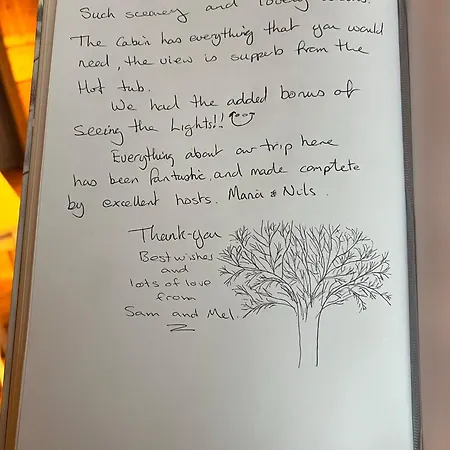 Such scenery and lovely
The Cabin has everything that you would
need, the view is supperb from the
Hot tub.
We had the added bonus of
Seeing the Lights!!
Everything about our trip here
has been fantastic and made complete
by excellent hosts. Maria & Nils.
Thank-you
Best wishes
and
lots of love
from
Sam and Mel.